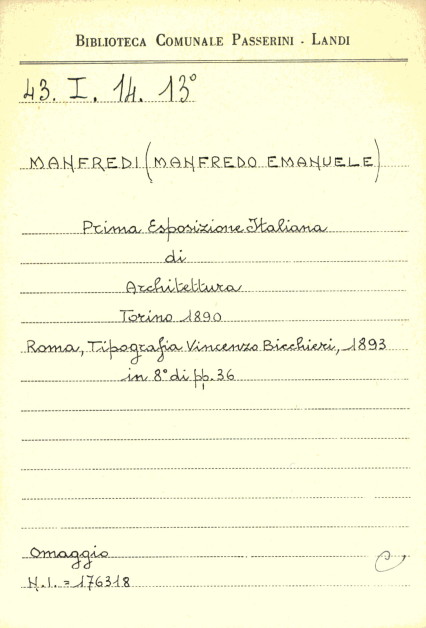 BIBLIOTECA COMUNALE PASSERINI - LANDI
43. I. 14. 13°
MANFREDI (MANFREDO EMANUELE)
Prima Esposizione Italiana
di
Architettura
Torino 1890
Roma, Tipografia Vincenzo Bicchieri, 1893
in 8° di pp. 36
Omaggio
N.I. = 176318